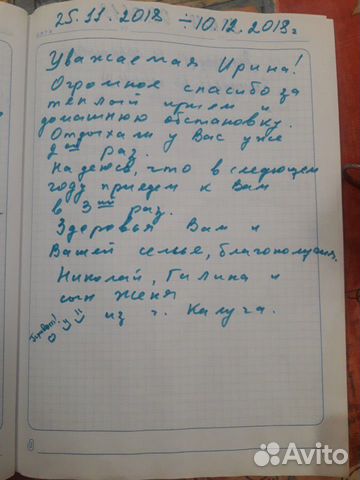 25.11.2018 ÷ 10.12.2018г
Уважаемая Ирина!
Огромное спасибо за
теплый прием и
домашнюю обстановку.
Отдыхали у Вас уже
2ой раз.
Надеюсь, что в следующем
году приедем к Вам
в 3ий раз.
Здоровья Вам и
Вашей семье, благополучия.
Николай, Галина и
сын Женя
из г. Калуга.
Привет!
Avito